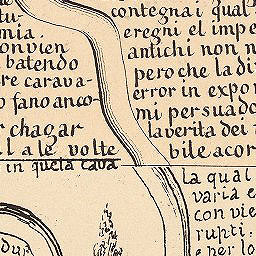 tu-
mia.
onvien
batendo
re carava-
o fano anco-
r chagar
l a le volte
in quela cava
contegnai qual
eregni el impe
antichi non n
pero che la di
error in expon
mi persuado
la verita dei
bile acor
la qual
varia e
con vie
rupti.
e per lo
dur